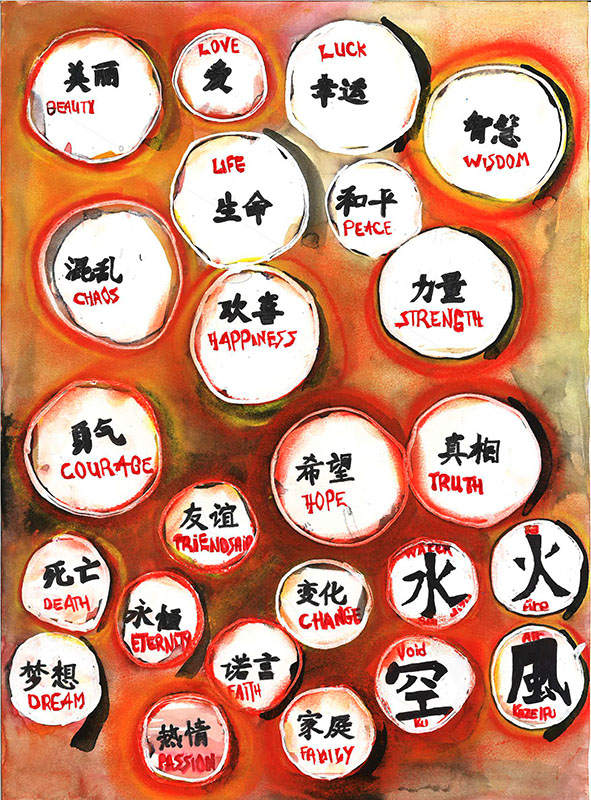 美丽
BEAUTY
LOVE
爱
LUCK
幸运
智慧
WISDOM
LIFE
生命
和平
PEACE
混乱
CHAOS
欢喜
HAPPINESS
力量
STRENGTH
勇气
COURAGE
希望
HOPE
真相
TRUTH
友谊
FRIENDSHIP
死亡
DEATH
永恒
ETERNITY
变化
CHANGE
WATER
水
火
FIRE
梦想
DREAM
诺言
FAITH
Void
空
KU
AIR
風
热情
PASSION
家庭
FAMILY